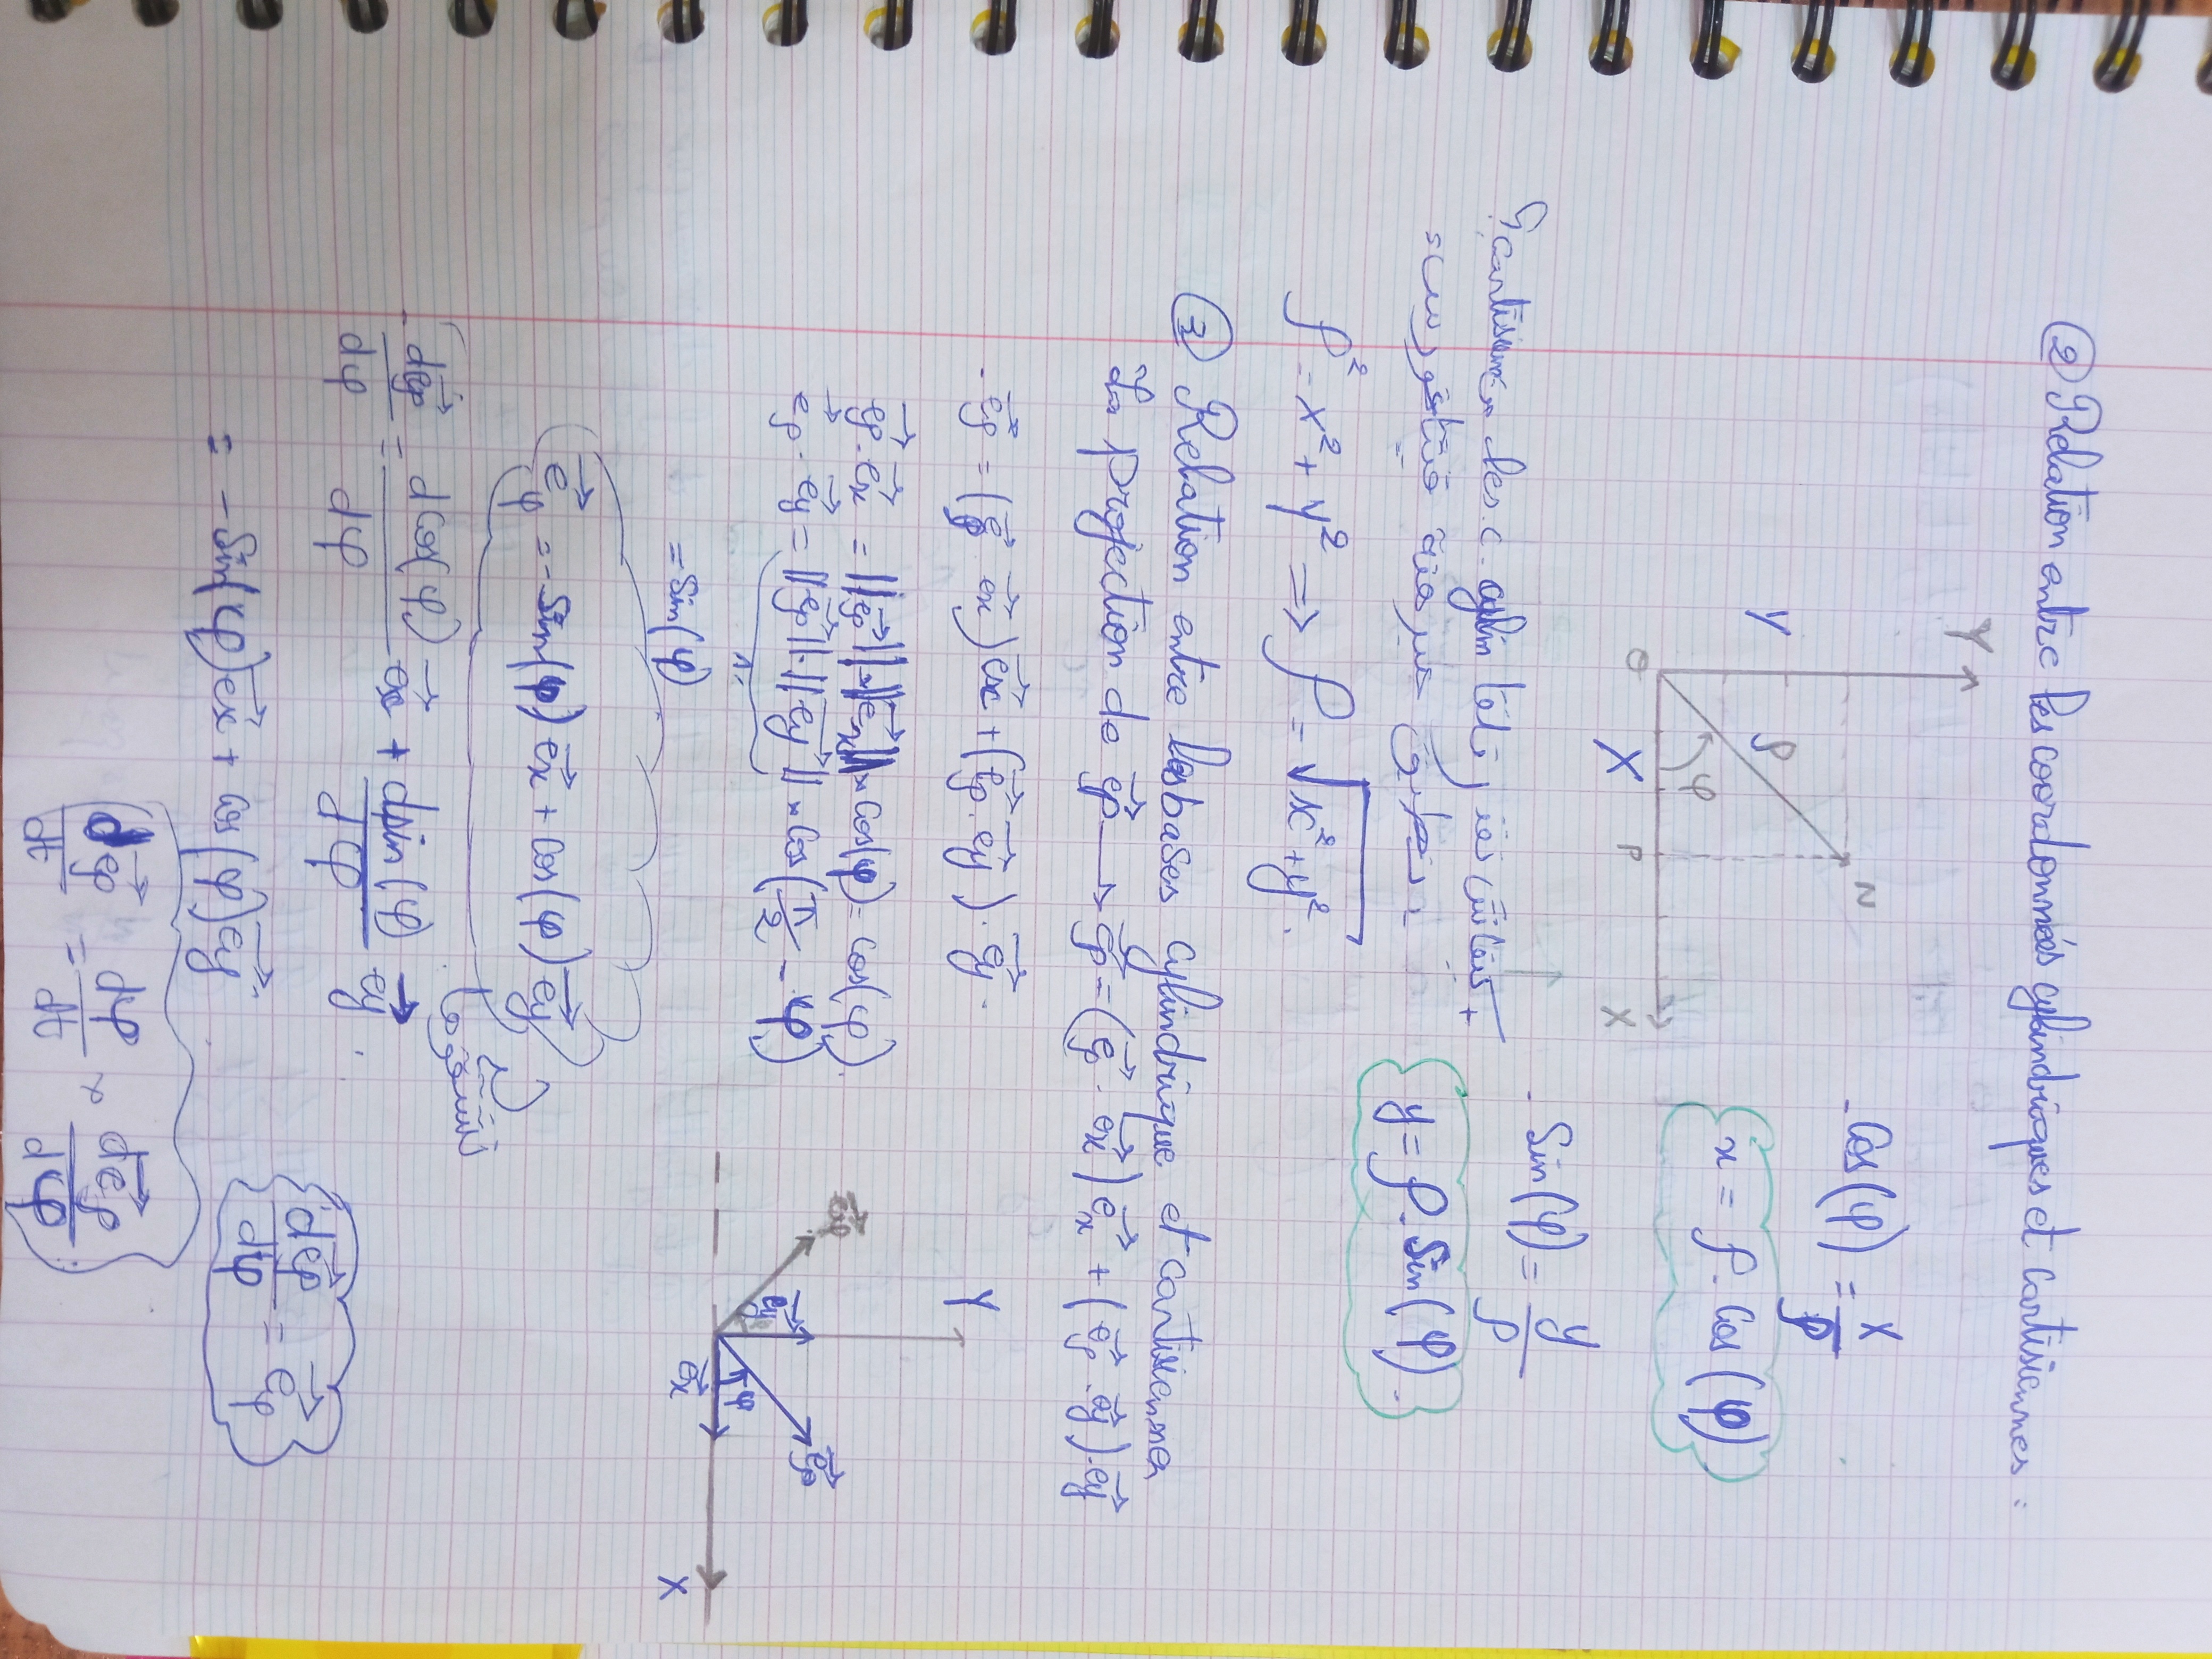 ② Relation entre les coordonnées cylindriques et cartisiennes :
Y
N
y
ρ
φ
O
X
P
X
- Cos(φ) = x/ρ
x = ρ . Cos(φ)
- Sin(φ) = y/ρ
y = ρ . Sin(φ).
ρ² = x² + y² ⟹ ρ = √x² + y².
③ Relation entre les bases cylindrique et cartisienne
La projection de e⃗ρ → e⃗ρ = (e⃗ρ . e⃗x) e⃗x + (e⃗ρ . e⃗y) . e⃗y
- e⃗ρ = (e⃗ρ . e⃗x) e⃗x + (e⃗ρ . e⃗y) . e⃗y .
e⃗ρ . e⃗x = ||e⃗ρ|| . ||e⃗x|| × cos(φ) = cos(φ)
e⃗ρ . e⃗y = ||e⃗ρ|| . ||e⃗y|| × Cos(π/2 - φ)
1
= Sin(φ)
Y
e⃗φ
e⃗y
e⃗ρ
φ
e⃗x
X
e⃗φ = - Sin(φ) e⃗x + Cos(φ) e⃗y
- de⃗ρ/dφ = dCos(φ)/dφ e⃗x + dsin(φ)/dφ e⃗y .
= - Sin(φ) e⃗x + cos(φ) e⃗y .
de⃗ρ/dφ = e⃗φ
de⃗ρ/dt = dφ/dt × de⃗ρ/dφ